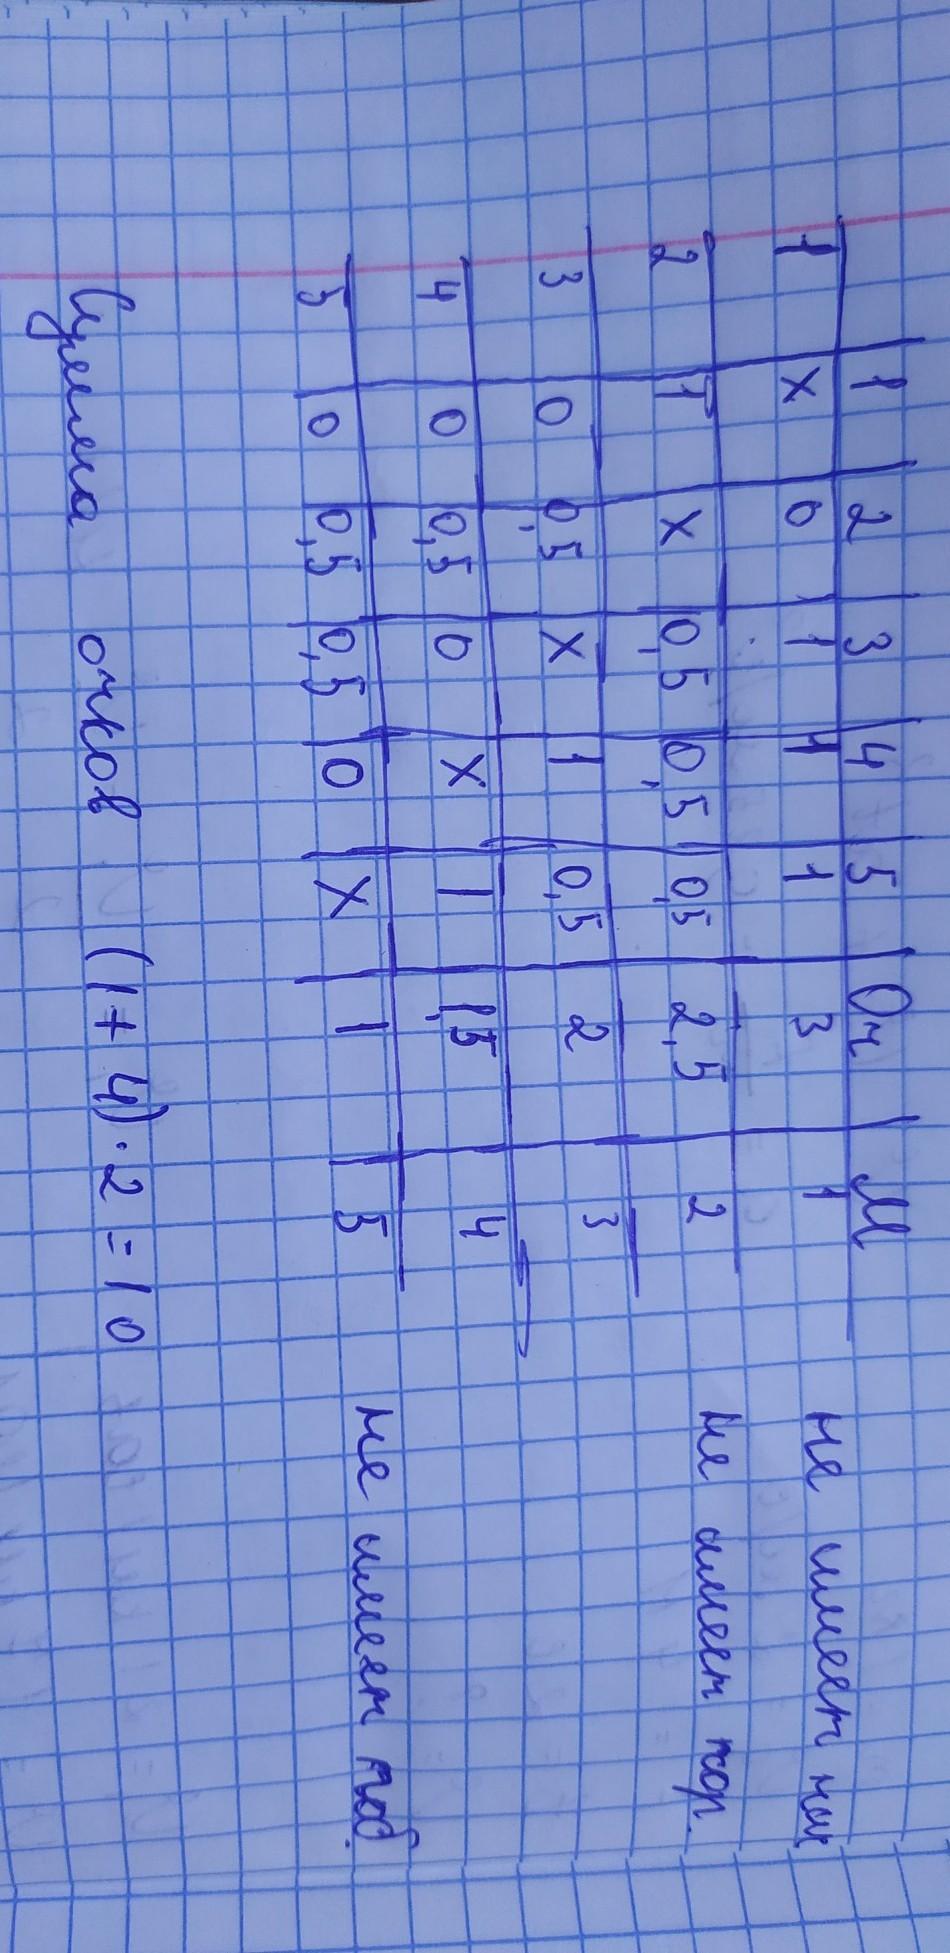 1 2 3 4 5 Оч М
1 X 0 1 1 1 3 1 не имеет нич
2 1 X 0,5 0,5 0,5 2,5 2 не имеет пор.
3 0 0,5 X 1 0,5 2 3
4 0 0,5 0 X 1 1,5 4
5 0 0,5 0,5 0 X 1 5 не имеет поб.
Сумма очков (1+4)·2=10